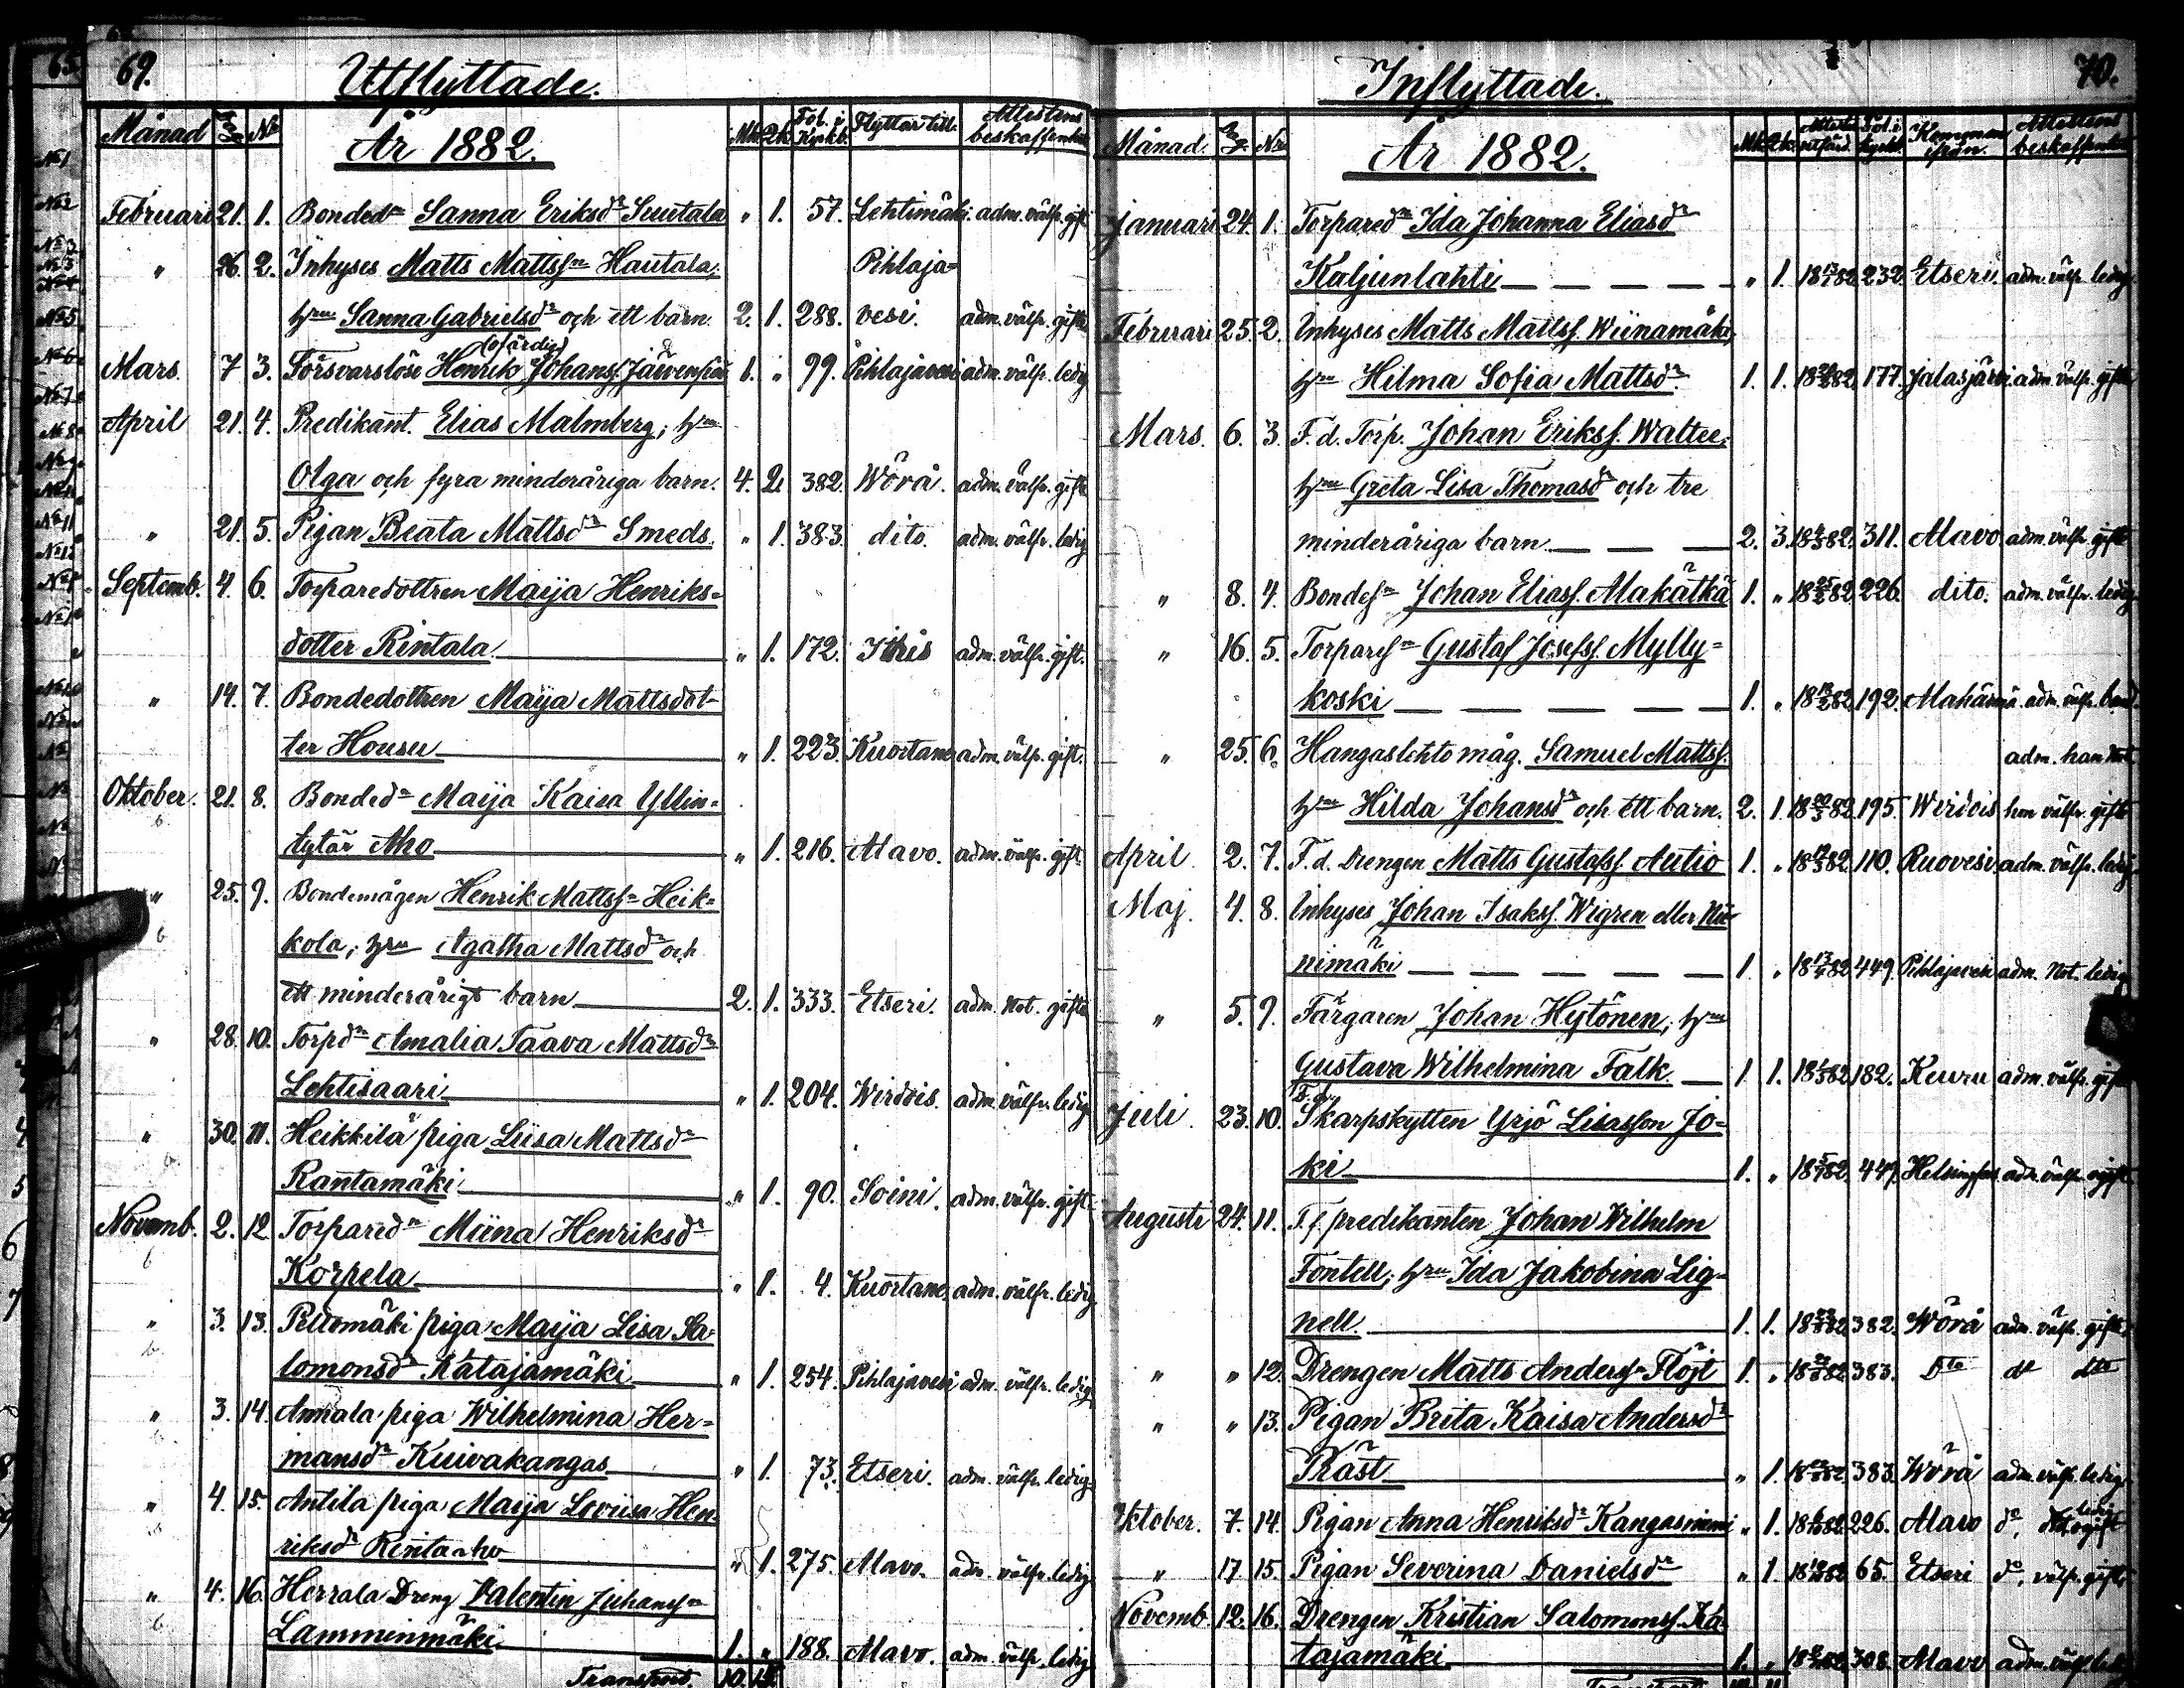 69.
Utflyttade.
Månad Dag No År 1882. Mk. Qk. Fol. i Kyrkb. Flyttar till. Attestens beskaffenhet
Februari 21. 1. Bonded:n Sanna Eriksd:r Suutala „ 1. 57. Lehtimäki. adm. välfr. gift
„ 26. 2. Inhyses Matts Mattss:n Hautala, Pihlaja-
h:ru Sanna Gabrielsd:r och ett barn. 2. 1. 288. vesi. adm. välfr. gifte
(ofärdig)
Mars. 7 3. Försvarslöse Henrik Johanss. Järvenpää 1. „ 99. Pihlajavesi adm. välfr. ledig
April 21. 4. Predikant. Elias Malmberg; h:ru
Olga och fyra minderåriga barn. 4. 2. 382. Wörå. adm. välfr. gifte
„ 21. 5. Pigan Beata Mattsd:r Smeds. „ 1. 383. dito. adm. välfr. ledig
Septemb. 4. 6. Torparedottren Maija Henriks-
dotter Rintala „ 1. 172. adm. välfr. gift.
„ 14. 7. Bondedottren Maija Mattsdot-
ter Housu „ 1. 223. Kuortane adm. välfr. gift.
Oktober. 21. 8. Bonded:n Maija Kaisa Yllin-
tytär Aho „ 1. 216. Alavo. adm. välfr. gift
„ 25. 9. Bondemågen Henrik Mattss:n Heik-
kola; h:ru Agatha Mattsd:r och
ett minderårigt barn 2. 1. 333. Etseri. adm. Not. gifte
„ 28. 10. Torpd:n Amalia Taava Mattsd:r
Lehtisaari „ 1. 204. Wirdois. adm. välfr. ledig
„ 30. 11. Heikkilä piga Liisa Mattsd:r
Rantamäki „ 1. 90. Soini. adm. välfr. gift.
Novemb. 2. 12. Torpared:n Miina Henriksd:r
Korpela „ 1. 4. Kuortane. adm. välfr. ledig
„ 3. 13. Peltomäki piga Maija Lisa Sa-
lomonsd:r Katajamäki „ 1. 254. Pihlajavesi adm. välfr. ledig
„ 3. 14. Annala piga Wilhelmina Her-
mansd:r Kuivakangas „ 1. 73. Etseri. adm. välfr. ledig
„ 4. 15. Antila piga Maija Loviisa Hen-
riksd:r Rinta-aho „ 1. 275. Alavo. adm. välfr. ledig
„ 4. 16. Herrala Dreng Valentin Juhanss:n
Lamminmäki 1. „ 188. Alavo. adm. välfr. ledig
Transport.
70.
Inflyttade.
Månad. Dag. No År 1882. Mk. Qk. Attesten utfärd. Fol. i kyrkb. Kommen ifrån. Attestens beskaffenhet
Januari 24. 1. Torpared:n Ida Johanna Eliasd:r
Kaljunlahti „ 1. 232. Etseri. adm. välfr. ledig
Februari 25. 2. Inhyses Matts Mattss. Wiinamäki,
h:ru Hilma Sofia Mattsd:r. 1. 1. 177. Jalasjärvi. adm. välfr. gifte
Mars. 6. 3. F. d. Torp. Johan Erikss. Waltee;
h:ru Greta Lisa Thomasd:r och tre
minderåriga barn. 2. 3. 311. Alavo adm. välfr. gifte
„ 8. 4. Bondes:n Johan Eliass. Makätkä 1. „ 226. dito. adm. välfr. ledig
„ 16. 5. Torpares:n Gustaf Josefss. Mylly-
koski 1. „ 192. adm. välfr.
„ 25. 6. Hangaslehto måg. Samuel Mattss. adm. han Not.
h:ru Hilda Johansd:r och ett barn. 2. 1. 195. Wirdois hon välfr. gifte
April 2. 7. F. d. Drengen Matts Gustafss. Autio 1. „ 110. Ruovesi adm. välfr. ledig
Maj. 4. 8. Inhyses Johan Isakss. Wigren eller Nii-
nimäki 1. „ 449. Pihlajavesi adm. Not. ledig
„ 5. 9. Färgaren Johan Hytönen; h:ru
Gustava Wilhelmina Falk. 1. 1. 182. Keuru adm. välfr. gifte
F. d.
Juli. 23. 10. Skarpskytten Yrjö Lisasson Jo-
ki 1. „ 447. Helsingfors adm. välfr. ogift
Augusti 24. 11. T. f. predikanten Johan Wilhelm
Fontell; h:ru Ida Jakobina Lig-
nell. 1. 1. 382. Wörå adm. välfr. gifte
„ „ 12. Drengen Matts Anderss:n Flöjt 1. „ 383. D:to d:o d:to
„ „ 13. Pigan Brita Kaisa Andersd:r
Räst „ 1. 383. Wörå adm. välfr. ledig
Oktober. 7. 14. Pigan Anna Henriksd:r Kangasniemi „ 1. 226. Alavo d:o.
„ 17 15. Pigan Severina Danielsd:r „ 1. 65. Etseri d:o. välfr. gift
Novemb. 12. 16. Drengen Kristian Salomonss. Ka-
tajamäki 1. „ 308. Alavo adm. välfr. ledig